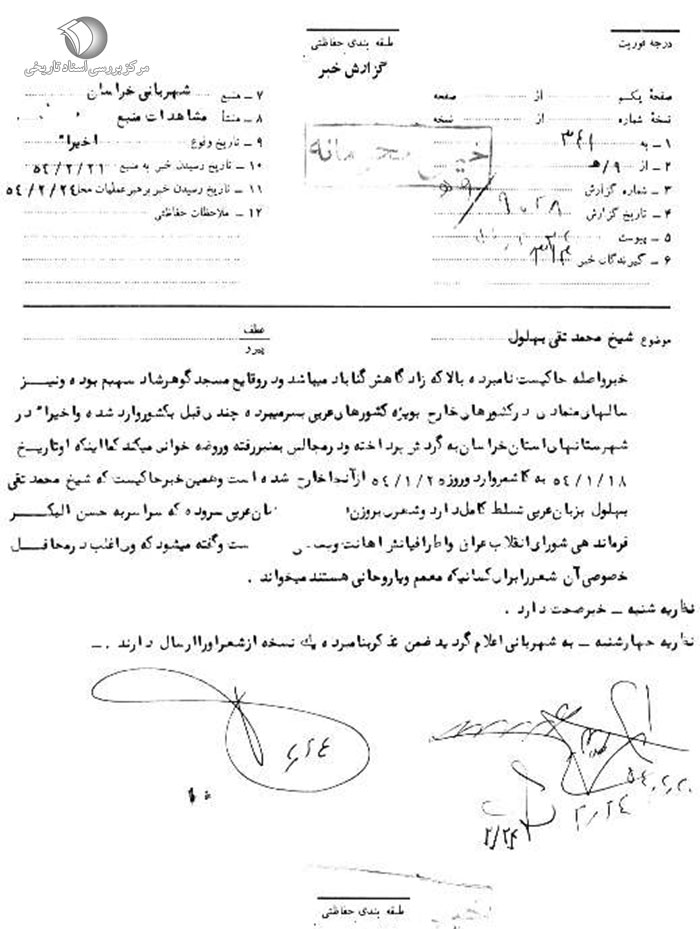 مرکز بررسی اسناد تاریخی
درجه فوریت
طبقه بندی حفاظتی
گزارش خبر
خیلی محرمانه
صفحهٔ یکم از صفحه
نسخهٔ شماره از نسخه
۱ ـ به ۳۴۱
۲ ـ از ۹/هـ
۳ ـ شماره گزارش
۴ ـ تاریخ گزارش
۵ ـ پیوست
۶ ـ گیرندگان خبر
۷ ـ منبع شهربانی خراسان
۸ ـ منشأ مشاهدات منبع
۹ ـ تاریخ وقوع اخیراً
۱۰ ـ تاریخ رسیدن خبر به منبع ۵۴/۲/۲۱
۱۱ ـ تاریخ رسیدن خبر برهبر عملیات محل ۵۴/۲/۲۴
۱۲ ـ ملاحظات حفاظتی
موضوع شیخ محمد تقی بهلول
عطف
پیرو
خبرواصله حاکیست نامبرده بالا که زادگاهش گناباد میباشد ودر وقایع مسجد گوهرشاد سهیم بوده ونیز
سالهای متمادی درکشورهای خارج بویژه کشورهای عربی بسرمیبرده چندی قبل بکشور وارد شده واخیراً در
شهرستانهای استان خراسان به گردش پرداخته ودرمجالس بمنبررفته وروضه خوانی میکند کما اینکه اوتاریخ
۵۴/۱/۱۸ به کاشمر وارد وروز ۵۴/۱/۲۵ ازآنجا خارج شده است وهمین خبرحاکیست که شیخ محمد تقی
بهلول بزبان عربی تسلط کامل دارد وشعری بروزن عربی سروده که سراسر به حسن البکر
فرمانده هی شورای انقلاب عراق واطرافیانش اهانت است وگفته میشود که وی اغلب درمحافل
خصوصی آن شعررابرای کسانیکه معمم ویاروحانی هستند میخواند .
نظریه شنبه ـ خبرصحت دارد .
نظریه چهارشنبه ـ به شهربانی اعلام گردید ضمن تذکربنامبرده یك نسخه ازشعراوراارسال دارند . ـ
۲/۲۴
۲/۲۴
۲/۲۴
طبقه بندی حفاظتی